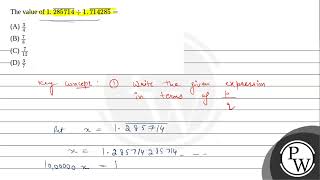 The value of 1. 285714 ÷ 1. 714285 =
(A) 3/4
(B)
(C) 7/12
(D)
Key concept: ① Write the given expression
in terms of p/q
Put x = 1.285714
x = 1.285714285714 - - -
10,00000 x = 1
PW